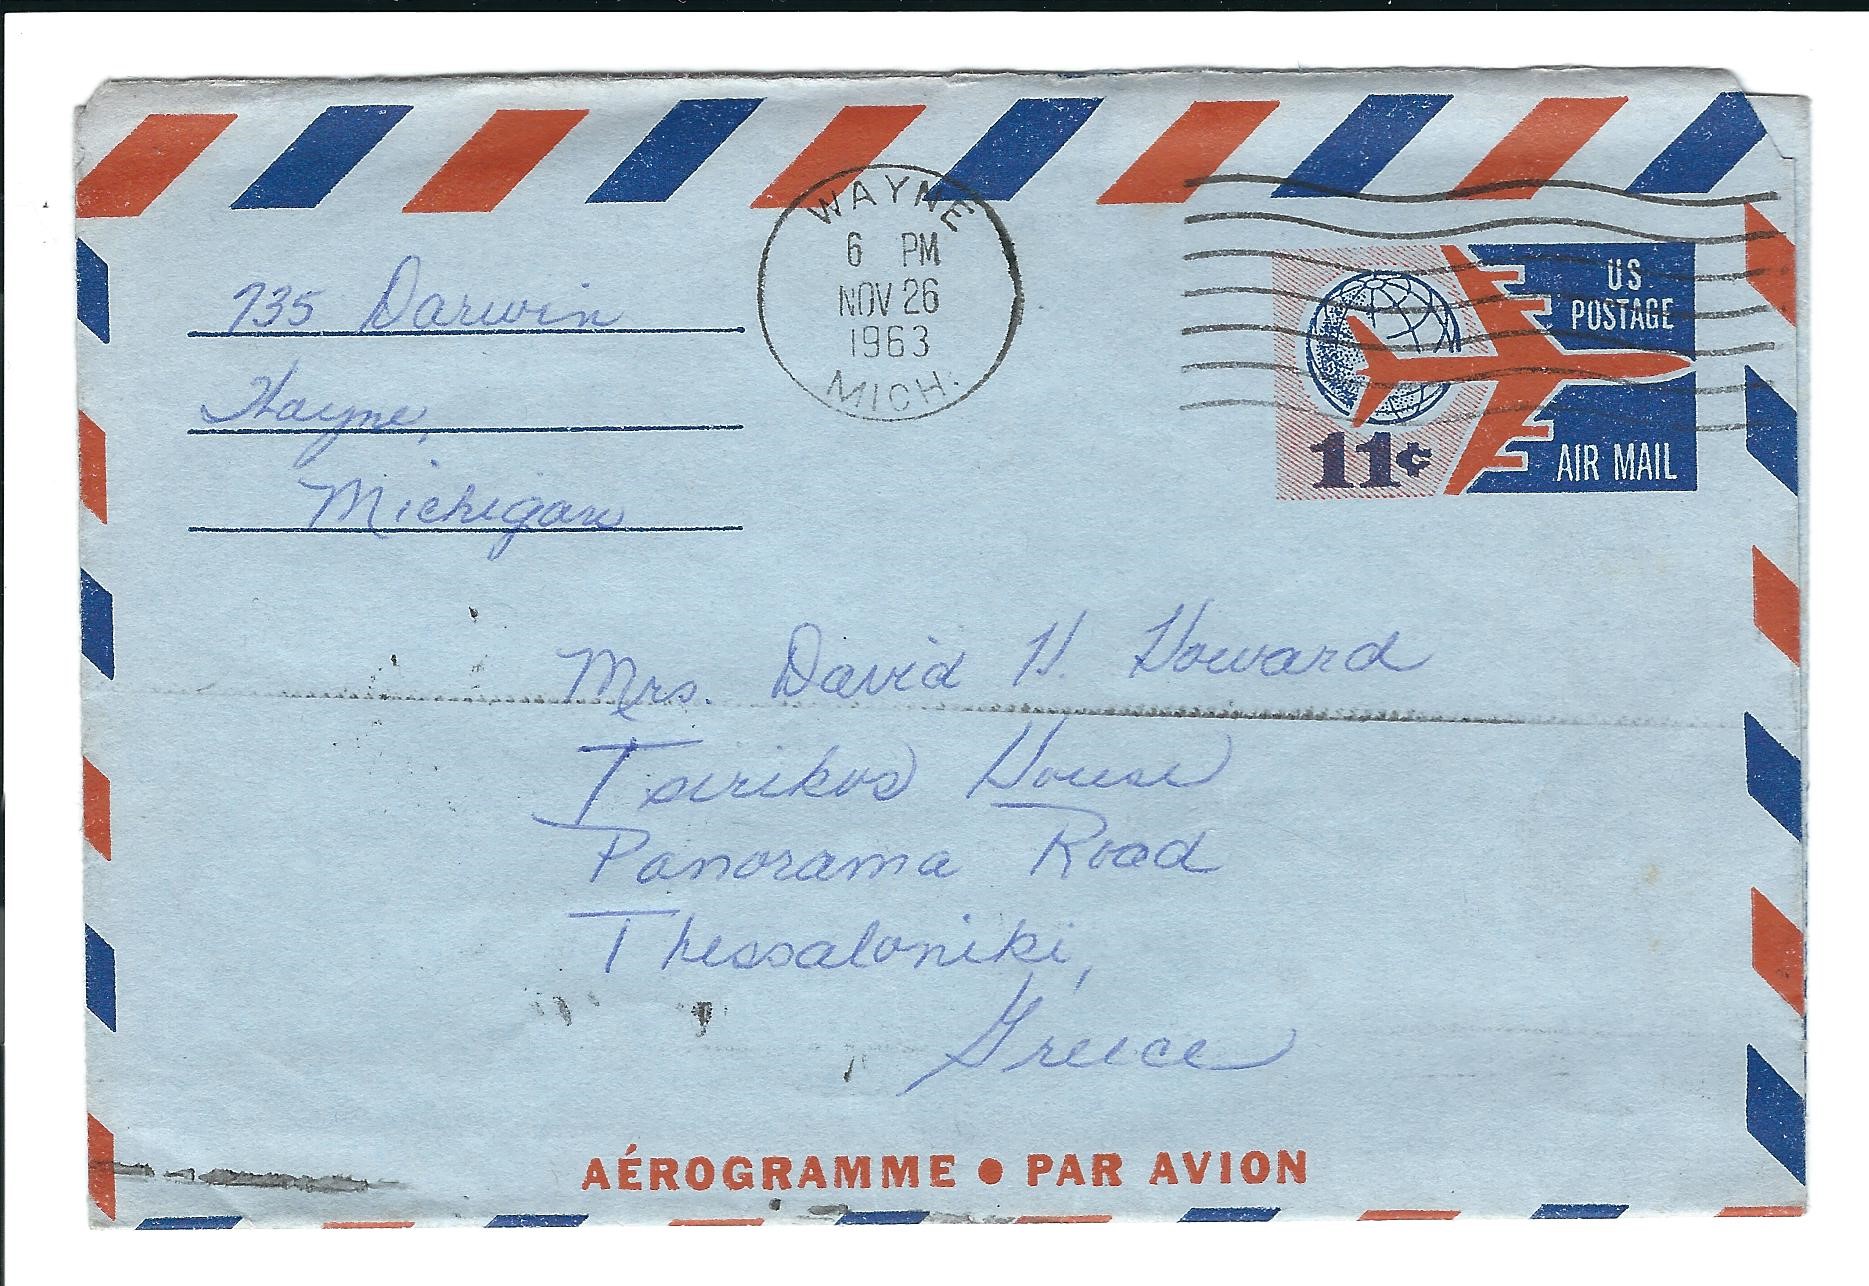 735 Darwin
Wayne,
Michigan
WAYNE
6 PM
NOV 26
1963
MICH.
US
POSTAGE
11¢
AIR MAIL
Mrs. David H. Howard
Tsirikos House
Panorama Road
Thessaloniki,
Greece
AÉROGRAMME • PAR AVION